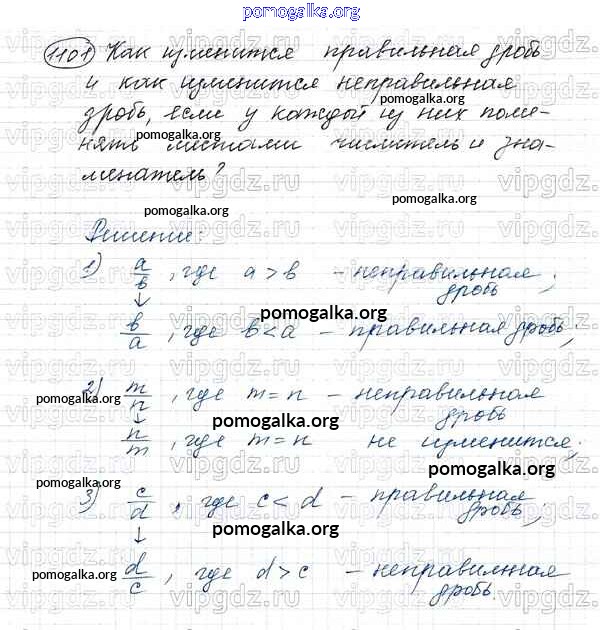 pomogalka.org
1101 Как изменится правильная дробь
и как изменится неправильная
дробь, если у каждой из них поме-
pomogalka.org
нять местами числитель и зна-
менатель?
pomogalka.org
pomogalka.org
vipgdz.ru vipgdz.ru vipgdz.
Решение:
1) a/b, где a > b – неправильная дробь;
↓
pomogalka.org
b/a, где b < a – правильная дробь;
2) m/n, где m = n – неправильная дробь
pomogalka.org
↓
pomogalka.org
n/m, где m = n не изменится;
pomogalka.org
pomogalka.org
3) c/d, где c < d – правильная дробь;
pomogalka.org
↓
d/c, где d > c – неправильная дробь.
pomogalka.org
pomogalka.org
vipgdz.ru vipgdz.ru vipgdz.